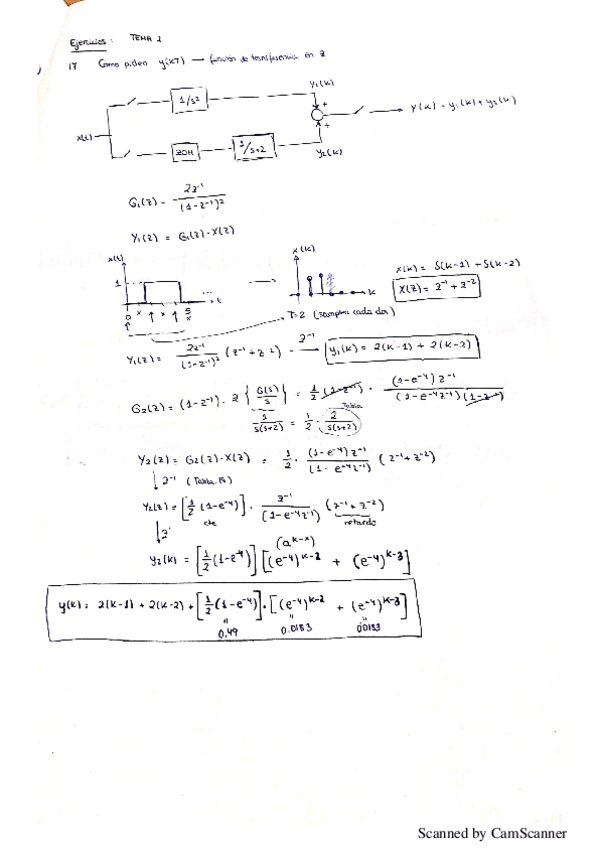 Ejercicios: TEMA 2
17 Como piden y(kT) → función de transferencia en z
y₁(k)
1/s²
+
x(t)
→ y(k) = y₁(k) + y₂(k)
+
ZOH
1/s+2
y₂(k)
G₁(z) = 2z⁻¹ / (1-z⁻¹)²
Y₁(z) = G₁(z)·X(z)
x(t)
1
t
x(k)
k
x(k) = δ(k-1) + δ(k-2)
X(z) = z⁻¹ + z⁻²
T=2 (samplea cada dos)
Y₁(z) = 2z⁻¹ / (1-z⁻¹)² (z⁻¹ + z⁻²) → z⁻¹ y₁(k) = 2(k-1) + 2(k-2)
G₂(z) = (1-z⁻¹) · z { G(s) / s } = 1/2 (1-z⁻¹) · (1-e⁻⁴) z⁻¹ / (1-e⁻⁴z⁻¹)(1-z⁻¹)
Tabla
1 / s(s+2) = 1/2 · 2 / s(s+2)
Y₂(z) = G₂(z)·X(z) = 1/2 · (1-e⁻⁴) z⁻¹ / (1-e⁻⁴z⁻¹) (z⁻¹ + z⁻²)
↓ z⁻¹
Y₂(z) = [1/2 (1-e⁻⁴)] · z⁻¹ / (1-e⁻⁴z⁻¹) (z⁻¹ + z⁻²)
cte
retardo
(aᵏ⁻ˣ)
y₂(k) = [1/2 (1-e⁻⁴)] [(e⁻⁴)ᵏ⁻² + (e⁻⁴)ᵏ⁻³]
y(k) = 2(k-1) + 2(k-2) + [1/2 (1-e⁻⁴)] · [(e⁻⁴)ᵏ⁻² + (e⁻⁴)ᵏ⁻³]
0.49 0.0183 0.0183
Scanned by CamScanner